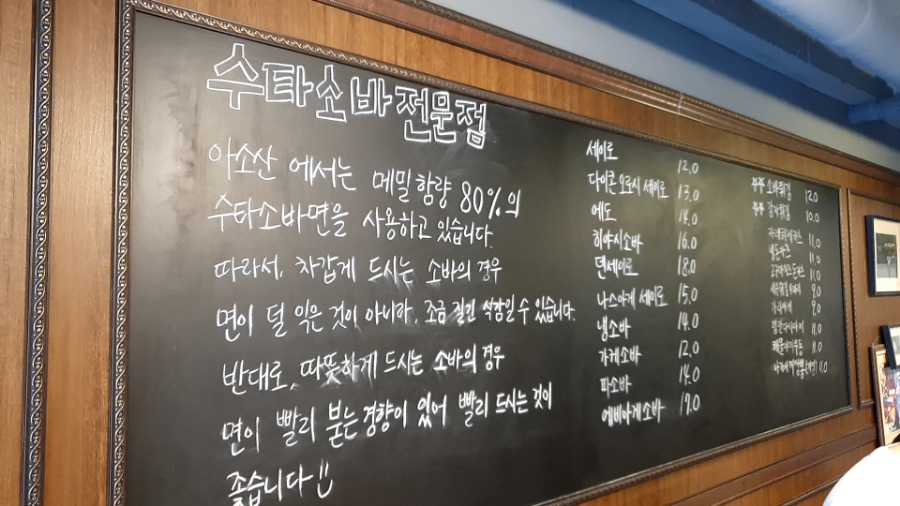 수타소바전문점
아소산 에서는 메밀함량 80%의
수타소바면을 사용하고 있습니다.
따라서, 차갑게 드시는 소바의 경우
면이 덜 익은 것이 아니라, 조금 질긴 식감일 수 있습니다.
반대로, 따뜻하게 드시는 소바의 경우
면이 빨리 붇는경향이 있어 빨리 드시는 것이
좋습니다
세이로 12.0
다이콘오로시 세이로 13.0
에도 14.0
히야시소바 16.0
덴세이로 18.0
나스아게 세이로 15.0
냉소바 14.0
가케소바 12.0
파소바 14.0
에비아게소바 17.0
12.0
10.0
11.0
11.0
11.0
9.0
8.0
11.0
11.0
11.0